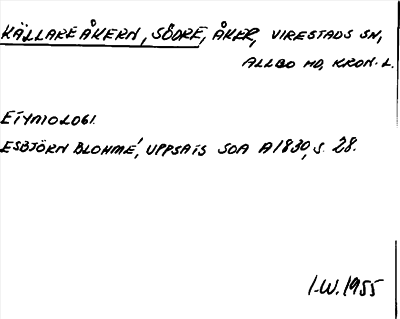 KÄLLAREÅKERN, SÖDRE, ÅKER, VIRESTADS SN,
ALLBO HD, KRON. L.
ETYMOLOGI.
ESBJÖRN BLOHMÉ, UPPSATS SOA A1830, S. 28.
I.W. 1955